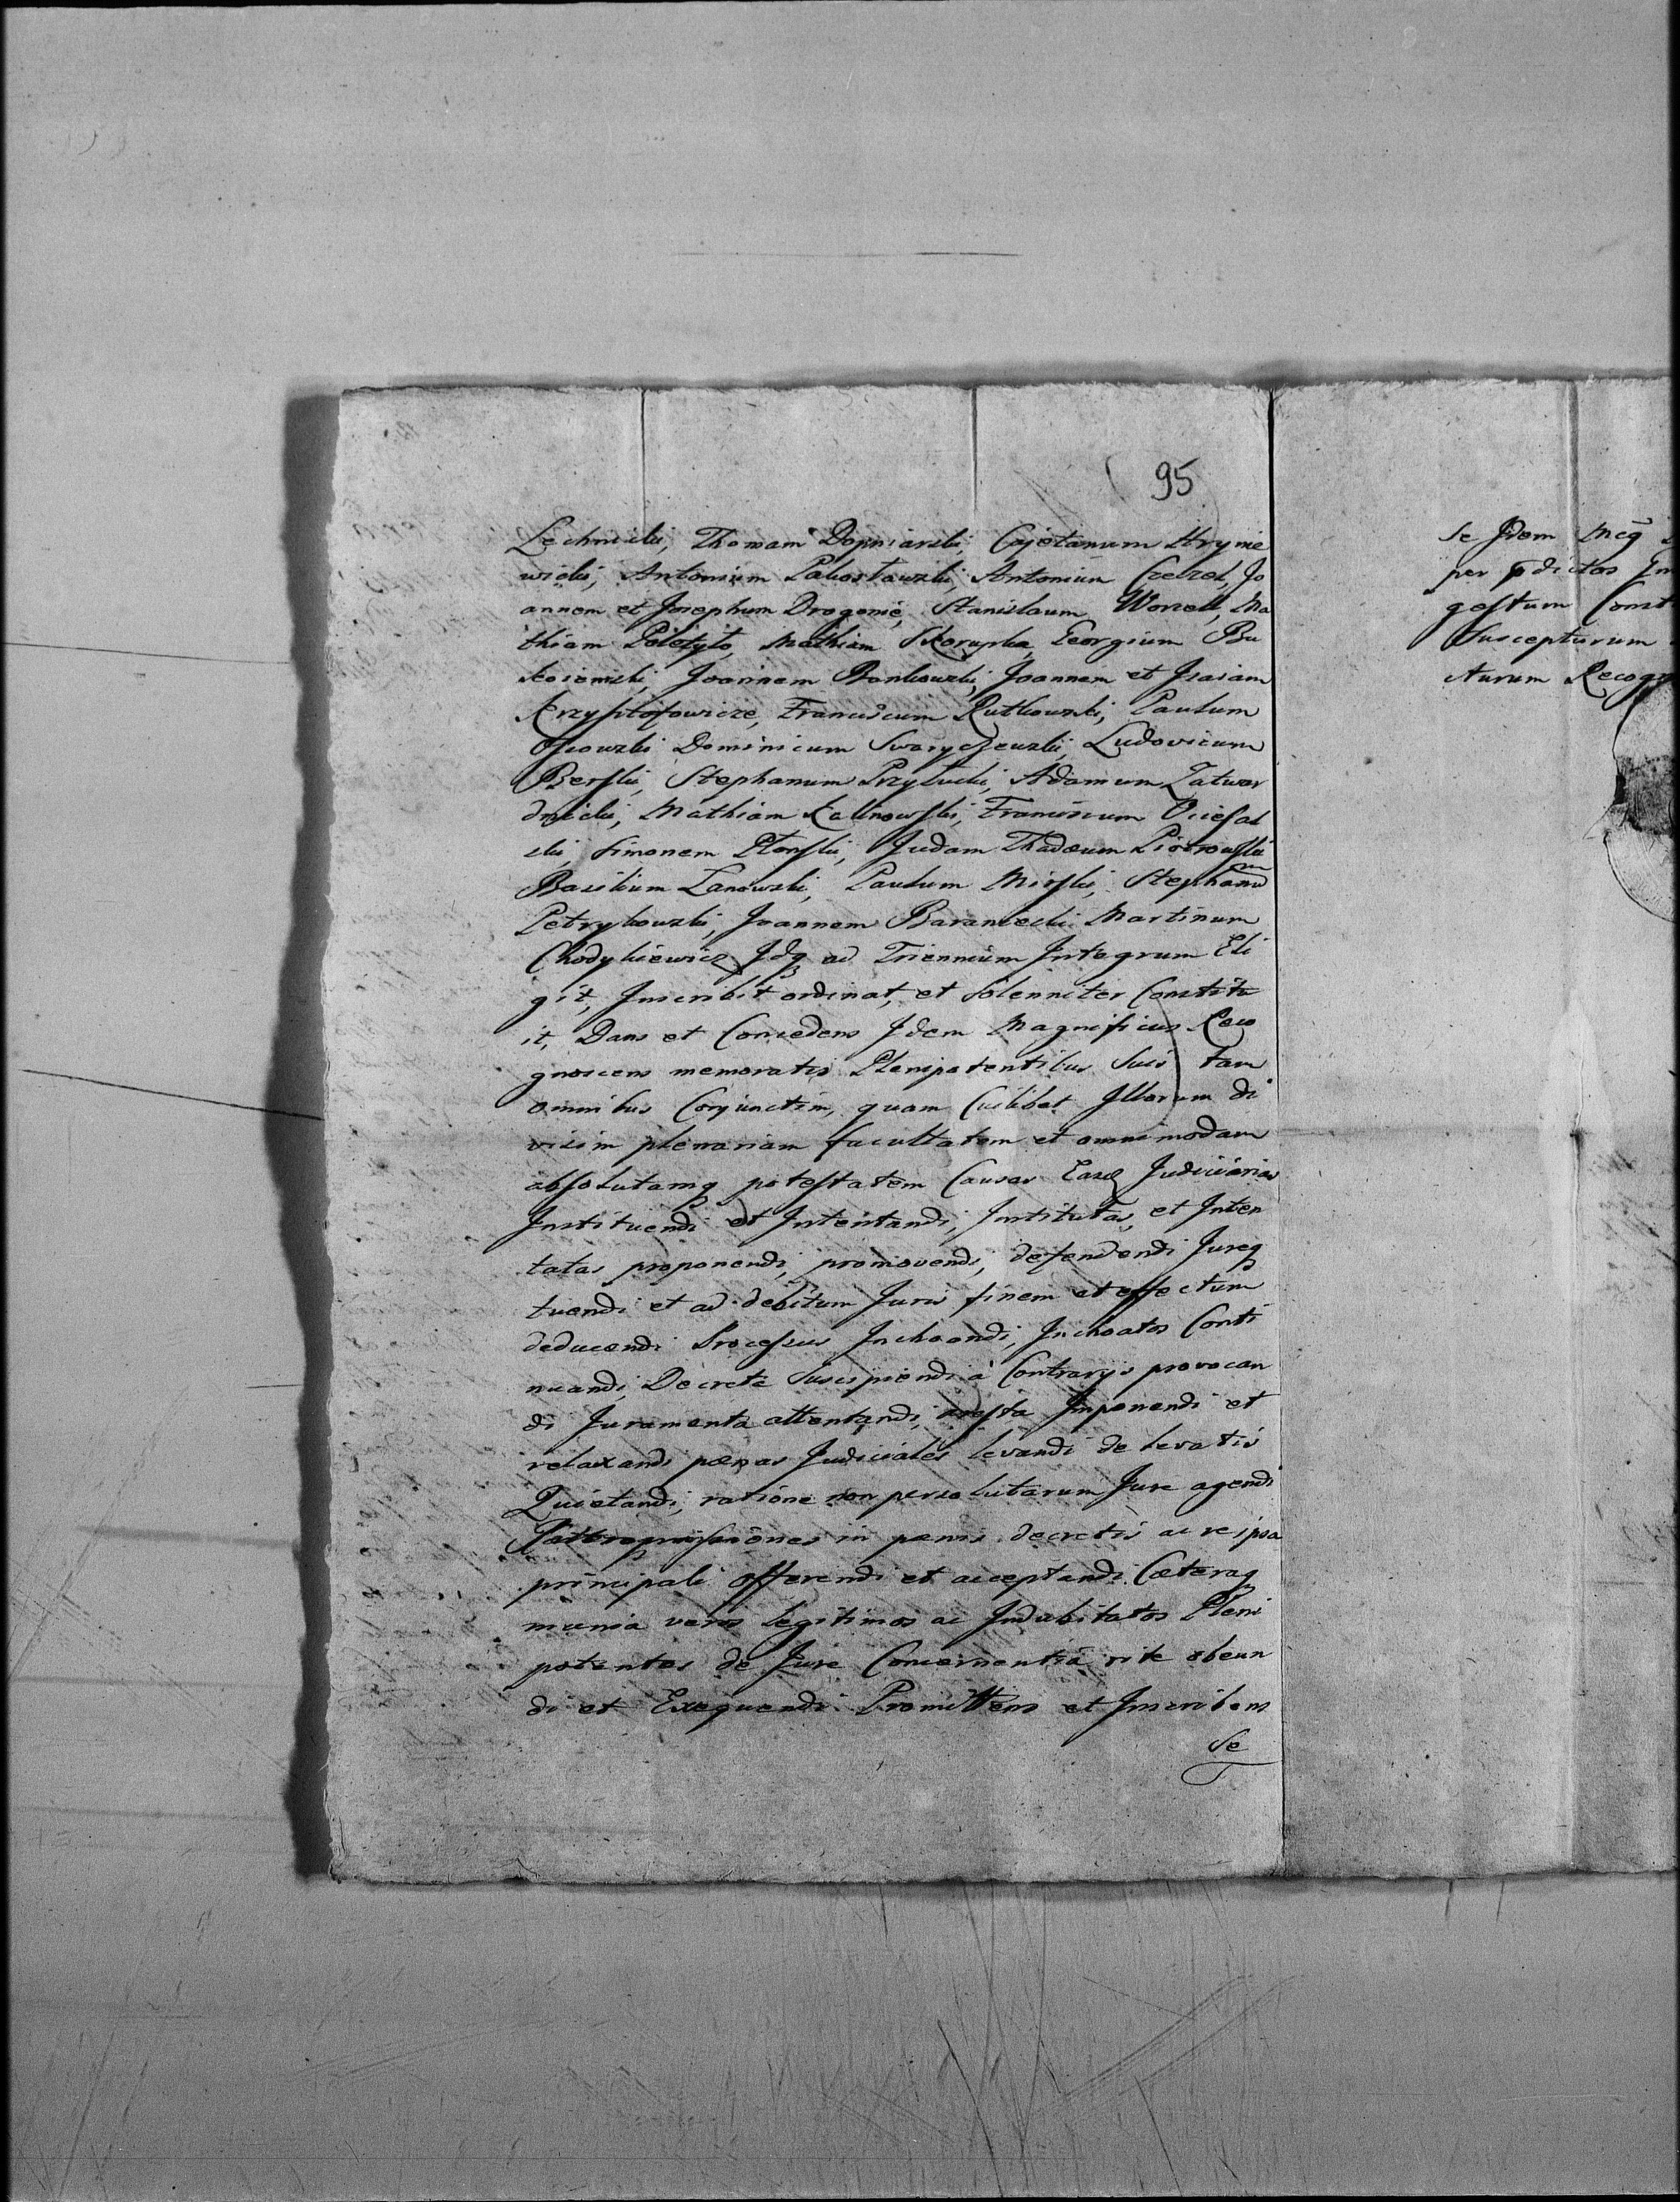 95
Lechnicki, Thomam Dopniarski, Cajetanum Hrynie
wicki, Antonium Pakostawski, Antonium Czelzel, Jo
annem et Josephum Drogonie, Stanislaum Worcell, Ma
thiam Poletyło, Mathiam Skorupka, Georgium Bu
koiemski, Joannem Bonkowski, Joannem et Isaiam
Krzysztofowicze, Franciscum Rutkowski, Paulum
Osowski Dominicum Swaryczewski, Ludovicum
Berski, Stephanum Przyłucki, Adamum Zatwar
dnicki, Mathiam Kalinowski, Franciscum Uciesal
ski, Simonem Płonski, Judam Thadæum Piotrowski
Basilium Zanowski, Paulum Mirski, Stephanum
Petrykowski, Joannem Baraniecki Martinum
Chodykiewicz Idq ad Triennium Integrum Eli
git, Inscribit ordinat, et Solenniter Constitu
it, Dans et Concedens Idem Magnificus Reco
gnoscens memoratis Plenipotentibus Suis tam
omnibus Conjunctim, quam Cuilibet Illorum di
visim plenariam facultatem et omnimodam
absolutamq potestatem Causas Easq Judiciarias
Instituendi et Intentandi, Institutas, et Inten
tatas proponendi, promovendi, defendendi Jureq
tuendi et ad debitum Juris finem et effectum
deducendi Processus Inchoandi, Inchoatos Conti
nuandi, Decreta Suscipiendi à Contrarijs provocan
di Juramenta attentandi, aresta Imponendi et
relaxandi pænas Judiciales levandi de levatis
Quietandi, ratione non persolutarum Jure agendi
in pænis decretis ac re ipsa
principali offerendi et acceptandi Cæteraq
munia veros legitimos ac Indubitatos Pleni
potentes de Jure Concernentia rite obeun
di et Exequendi. Promittens et Inscribens
Se
Se Idem Mcq
per pdictos
gestum Const
Suscepturum
cturum Recog